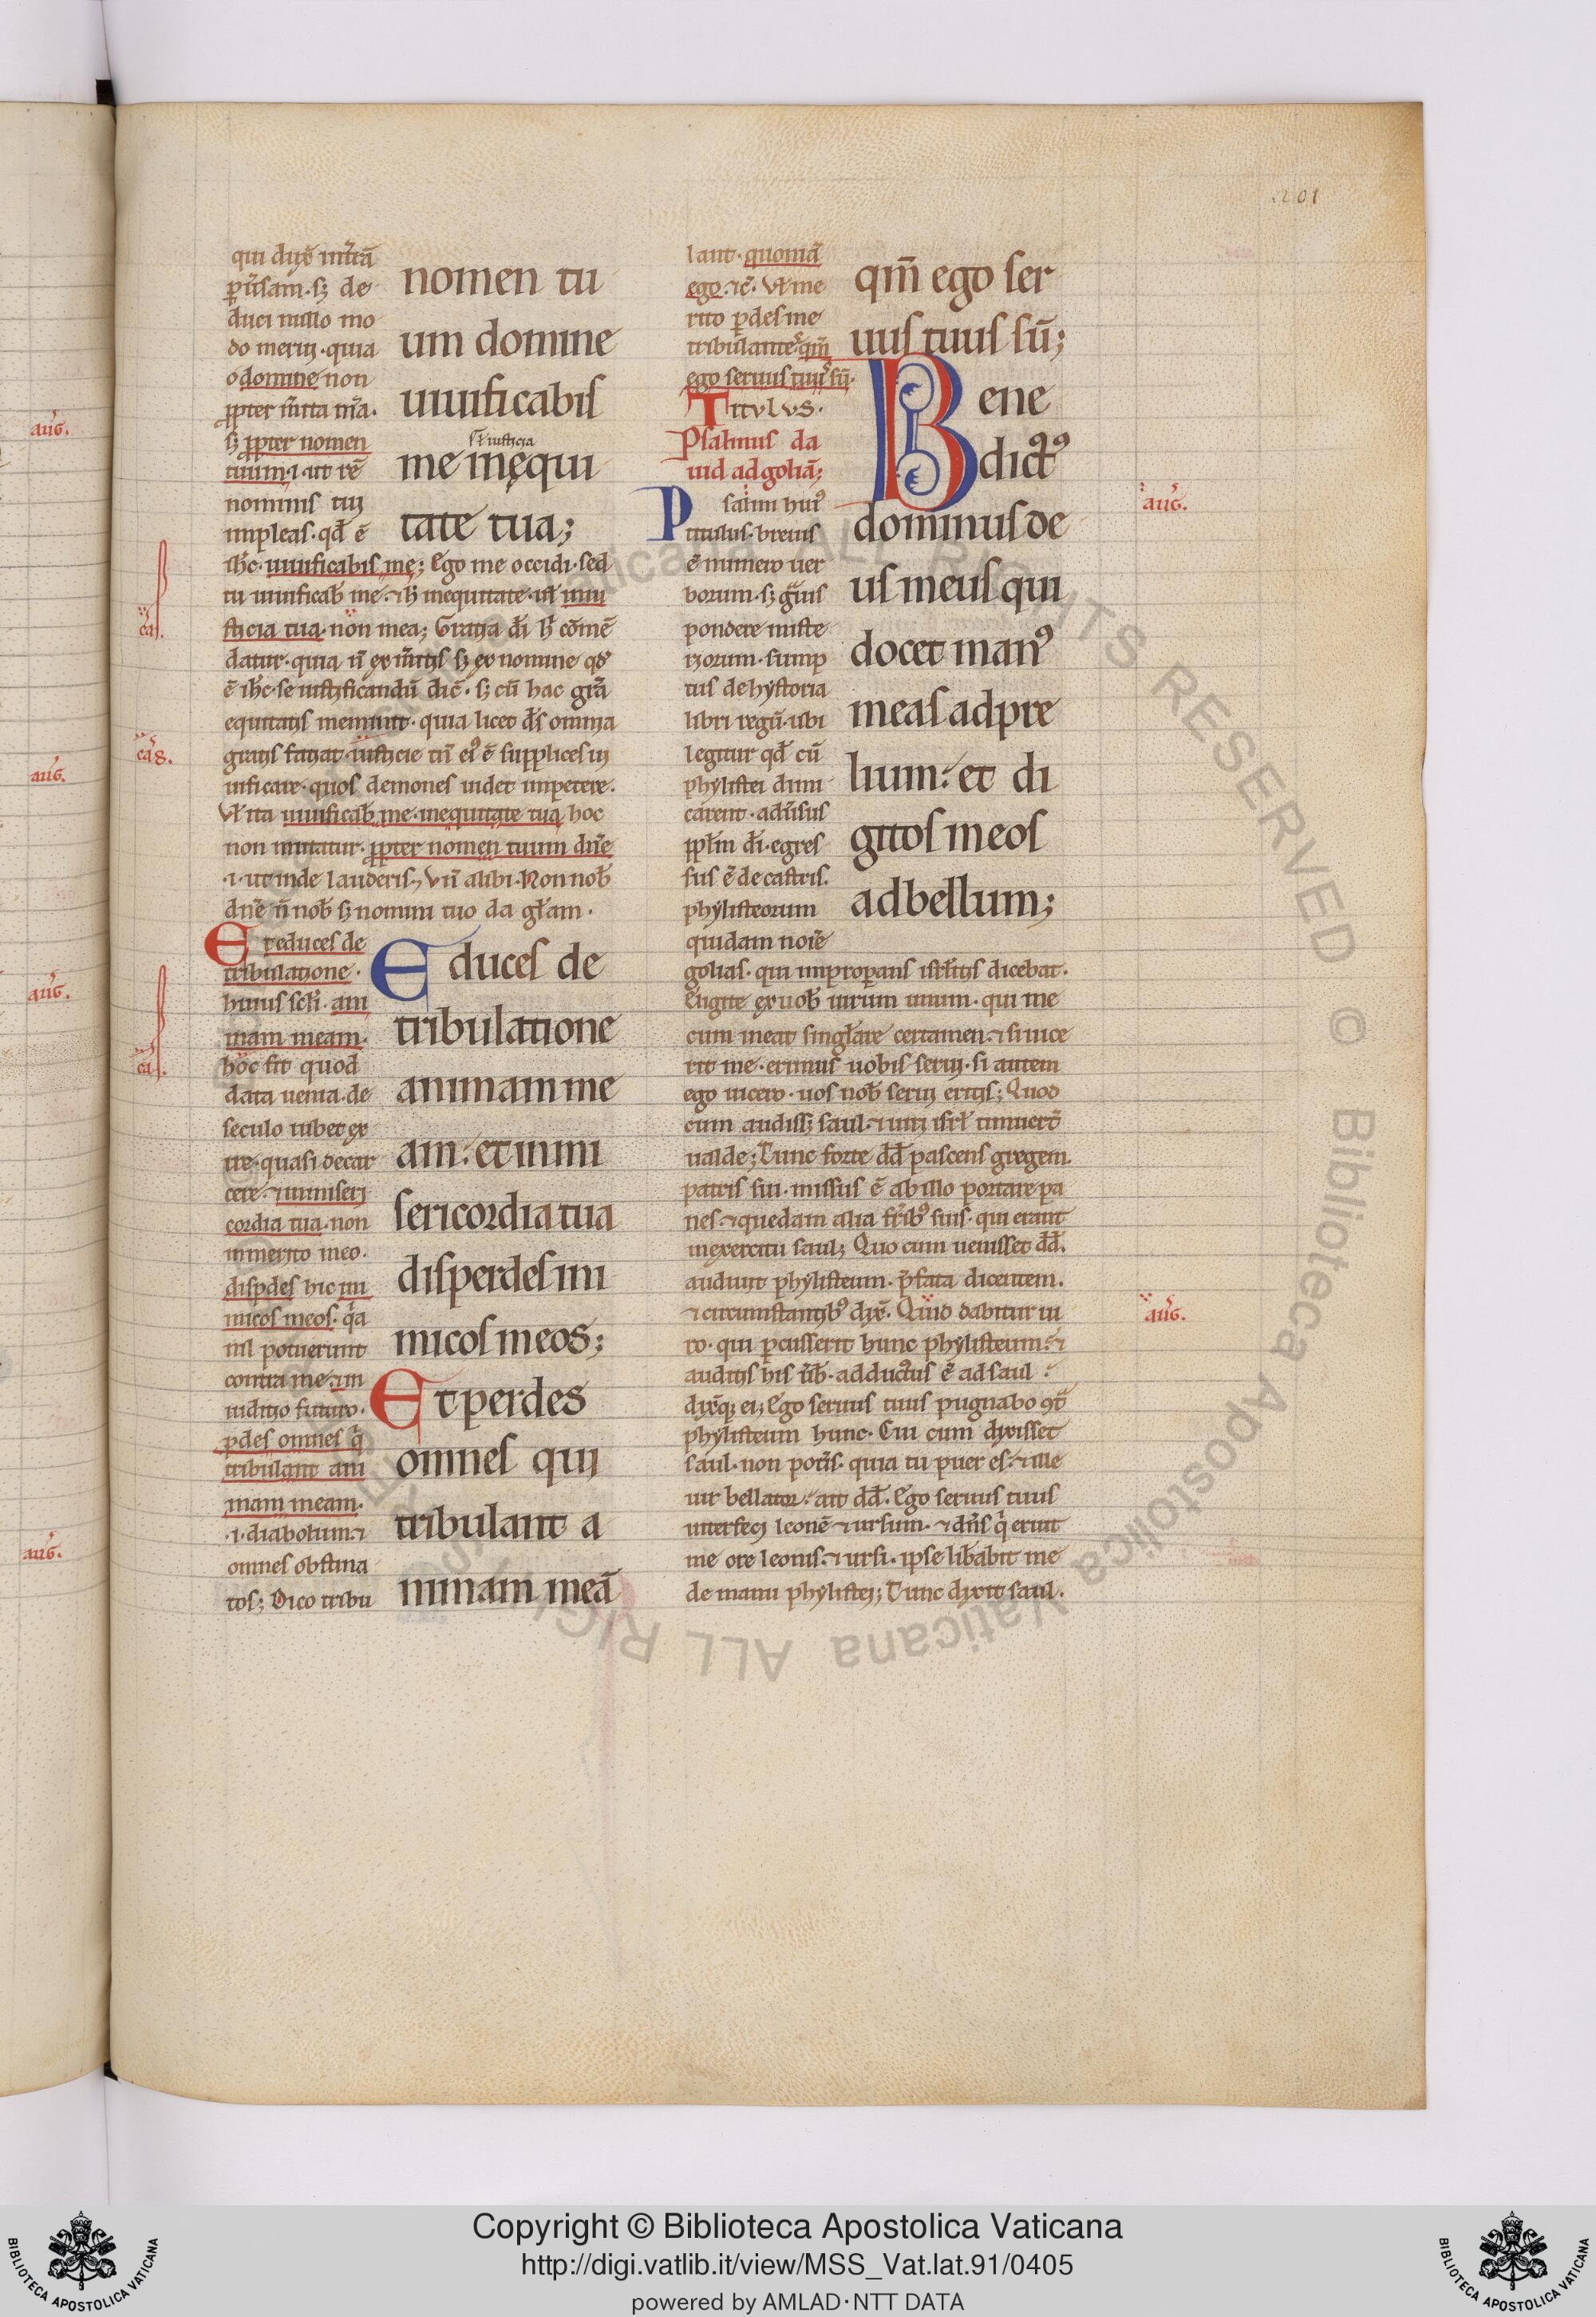 201
qui dixẽ mr̃iã
puersam · s; de
duci nullo mo
do merui · quia
o domine non
ppter m̃ita m̃a ·
s; ppter nomen
tuum · i · ut rẽ
nominis tui
impleas · qđ ẽ
ih̃c · uiuificabis me; Ego me occidi · sed
tu uiuificab̃ me · ⁊ h̃ inequitate · uł iniu
sticia tua · non mea; Gratia dĩ h̃ cõmẽ
datur · quia ñ ex m̃itis s; ex nomine qđ
ẽ ih̃c · se iustificandũ dic̃ · s; cũ hac gr̃a
equitatis meminit · quia licet d̃s omnia
gratis faciat · iusticie tñ eiꝰ ẽ supplices ui
uificare · quos demones uidet impetere ·
Vł ita uiuificab̃ me · inequitate tua hoc
non mutatur · ppter nomen tuum dñe
· i · ut inde lauderis; Vñ alibi · Non nob̃
dñe ñ nob̃ s; nomini tuo da gł̃am ·
nomen tu
um domine
uiuificabis
uł iusticia
me inęqui
tate tua;
Et educes de
tribulatione ·
huius scłi · ani
mam meam ·
hoc fit quod
data uenia · de
seculo iubet ex
ire · quasi de car
cere · ⁊ inmiseri
cordia tua · non
inmerito meo ·
dispdes hic ini
micos meos · q̃a
nil potuerunt
contra me · ⁊ in
iuditio futuro ·
pdes omnes q̃
tribulant ani
mam meam ·
· i · diabolum ⁊
omnes obstina
tos; Dico tribu
Educes de
tribulatione
animam me
am · et inmi
sericordia tua
disperdes ini
micos meos;
Et perdes
omnes qui
tribulant a
nimam meã
lant · quoniã
ego · ⁊c̃ · Vł me
rito pdes me
tribulantes · qm̃
ego seruus tuus sũ ·
TITVLVS ·
Psalmus da
uid ad goliã;
Psalmi huiꝰ
titulus · breuis
ẽ numero uer
borum · s; g̃uis
pondere miste
riorum · sump
tus de hystoria
libri regũ · ubi
legitur qđ cũ
phylistei dimi
carent · adũsus
ppłm dĩ · egres
sus ẽ de castris ·
phylisteorum
quidam noĩe
golias · qui improperans isrłitis dicebat ·
Eligite ex uob̃ uirum unum · qui me
cum ineat singłare certamen · ⁊ si uice
rit me · erimus uobis serui · si autem
ego uicero · uos nob̃ serui eritis; Quod
cum audiss; saul · ⁊ uiri isrł timuert̃
ualde; Tunc forte dd̃ pascens gregem
patris sui · missus ẽ ab illo portare pa
nes · ⁊ quedam alia fr̃ibꝰ suis · qui erant
inexercitu saul; Quo cum uenisset dd̃ ·
audiuit phylisteum · p̃fata dicentem ·
⁊ circumstantibꝰ dix̃ · Quid dabitur ui
ro · qui pcusserit hunc phylisteum · ⁊
auditis his ũb̃ · adductus ẽ ad saul ·
dix̃q; ei; Ego seruus tuus pugnabo ꝯt̃
phylisteum hunc · Cui cum dixisset
saul · non poťis · quia tu puer es · ⁊ ille
uir bellator · ait dd̃ · Ego seruus tuus
interfeci leonẽ ⁊ ursum · ⁊ dñs q̃ eruit
me ore leonis · ⁊ ursi · ipse lib̃abit me
de manu phylistei; Tunc dixit saul ·
qm̃ ego ser
uus tuus sũ;
Bene
dictꝰ
dominus de
us meus qui
docet manꝰ
meas ad pre
lium · et di
gitos meos
ad bellum;
aug̃ ·
aug̃ ·
aug̃ ·
aug̃ ·
cas ·
cas ·
cas ·
aug̃ ·
aug̃ ·
© Biblioteca Apostolica Vaticana ALL RIGHTS RESERVED
Copyright © Biblioteca Apostolica Vaticana
http://digi.vatlib.it/view/MSS_Vat.lat.91/0405
powered by AMLAD·NTT DATA
BIBLIOTECA APOSTOLICA VATICANA
BIBLIOTECA APOSTOLICA VATICANA